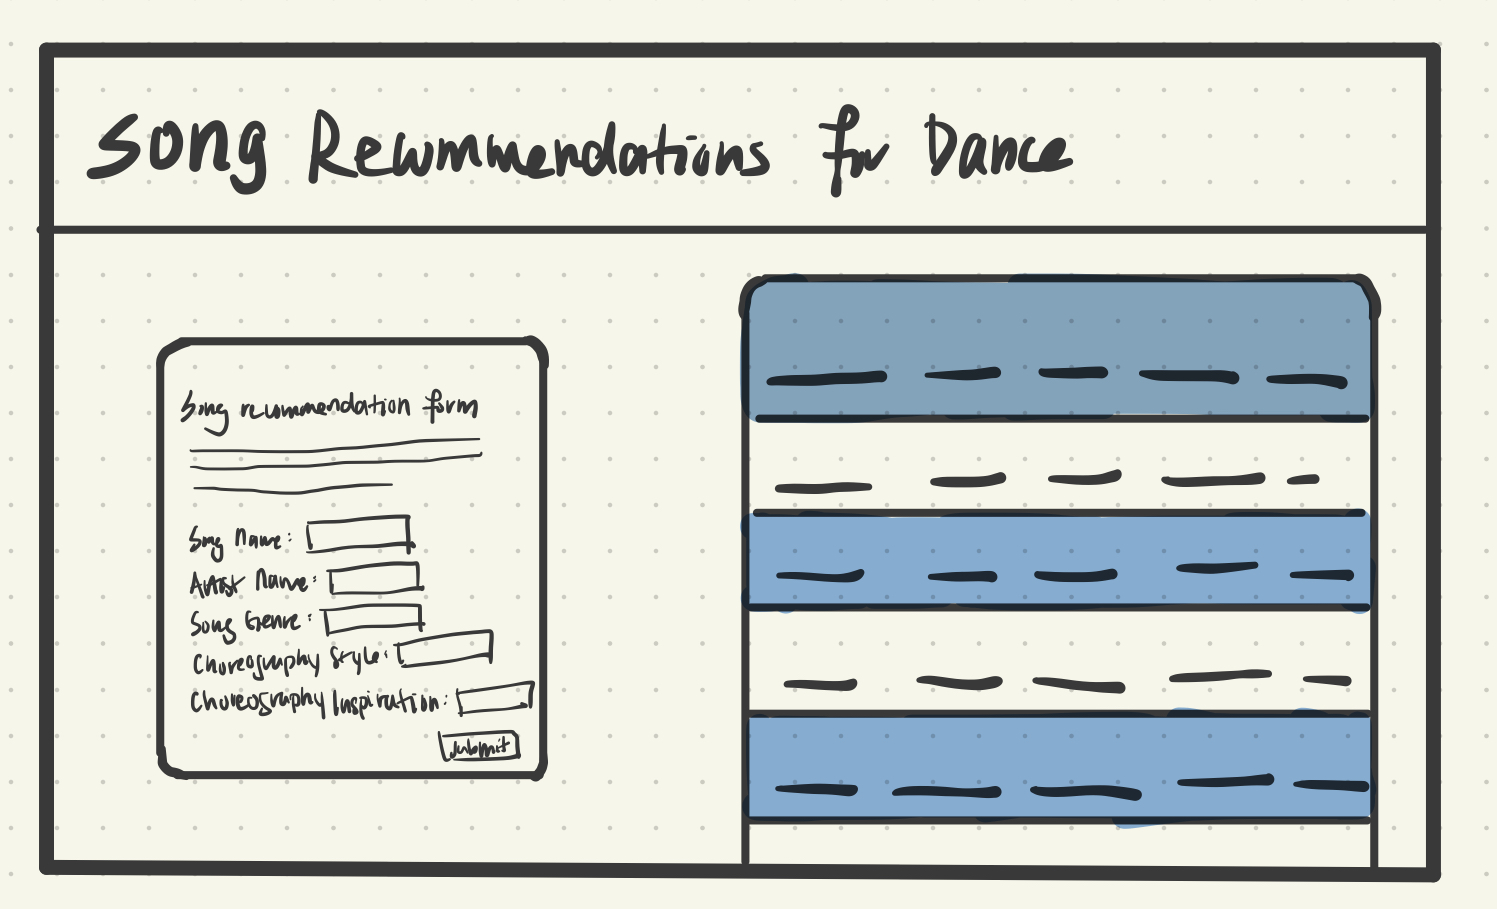 Song Recommendations for Dance
Song recommendation form
Song Name:
Artist Name:
Song Genre:
Choreography Style:
Choreography Inspiration:
submit